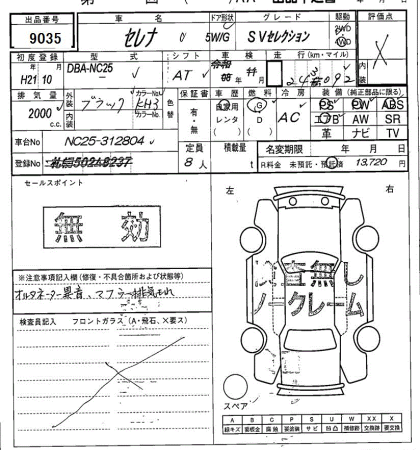 出品番号 車名 ドア形状 グレード 駆動 評価点
9035 セレナ 5W/G SVセレクション 2WD
初度登録 型式 シフト 車検 走行(km・マイル)
H21 10 DBA-NC25 AT
排気量 外装色 カラーNo. 色替 保証書 車歴 燃料 冷房 装備(純正部品に限る)
2000 c.c. ブラック KH3 有・無 自家用 G AC PS PW ABS
レンタ D エアB AW SR
内装色 カラーNo. ( ) ( ) 革 ナビ TV
車台No NC25-312804 定員 積載量 名変期限 年 月 日
登録No 8人 t R料金 未預託・預託済 13,720
セールスポイント 左 右
無効
検査無し
ノークレーム
※注意事項記入欄(修復・不具合箇所および状態等)
オルタネーター異音、マフラー排気もれ
検査員記入 フロントガラス(A・飛石、X要ス)
スペア
A B C P S U W XX X
線キズ 要板金 腐蝕 要塗装 サビ 凹凸 補修跡 交換跡 要交換